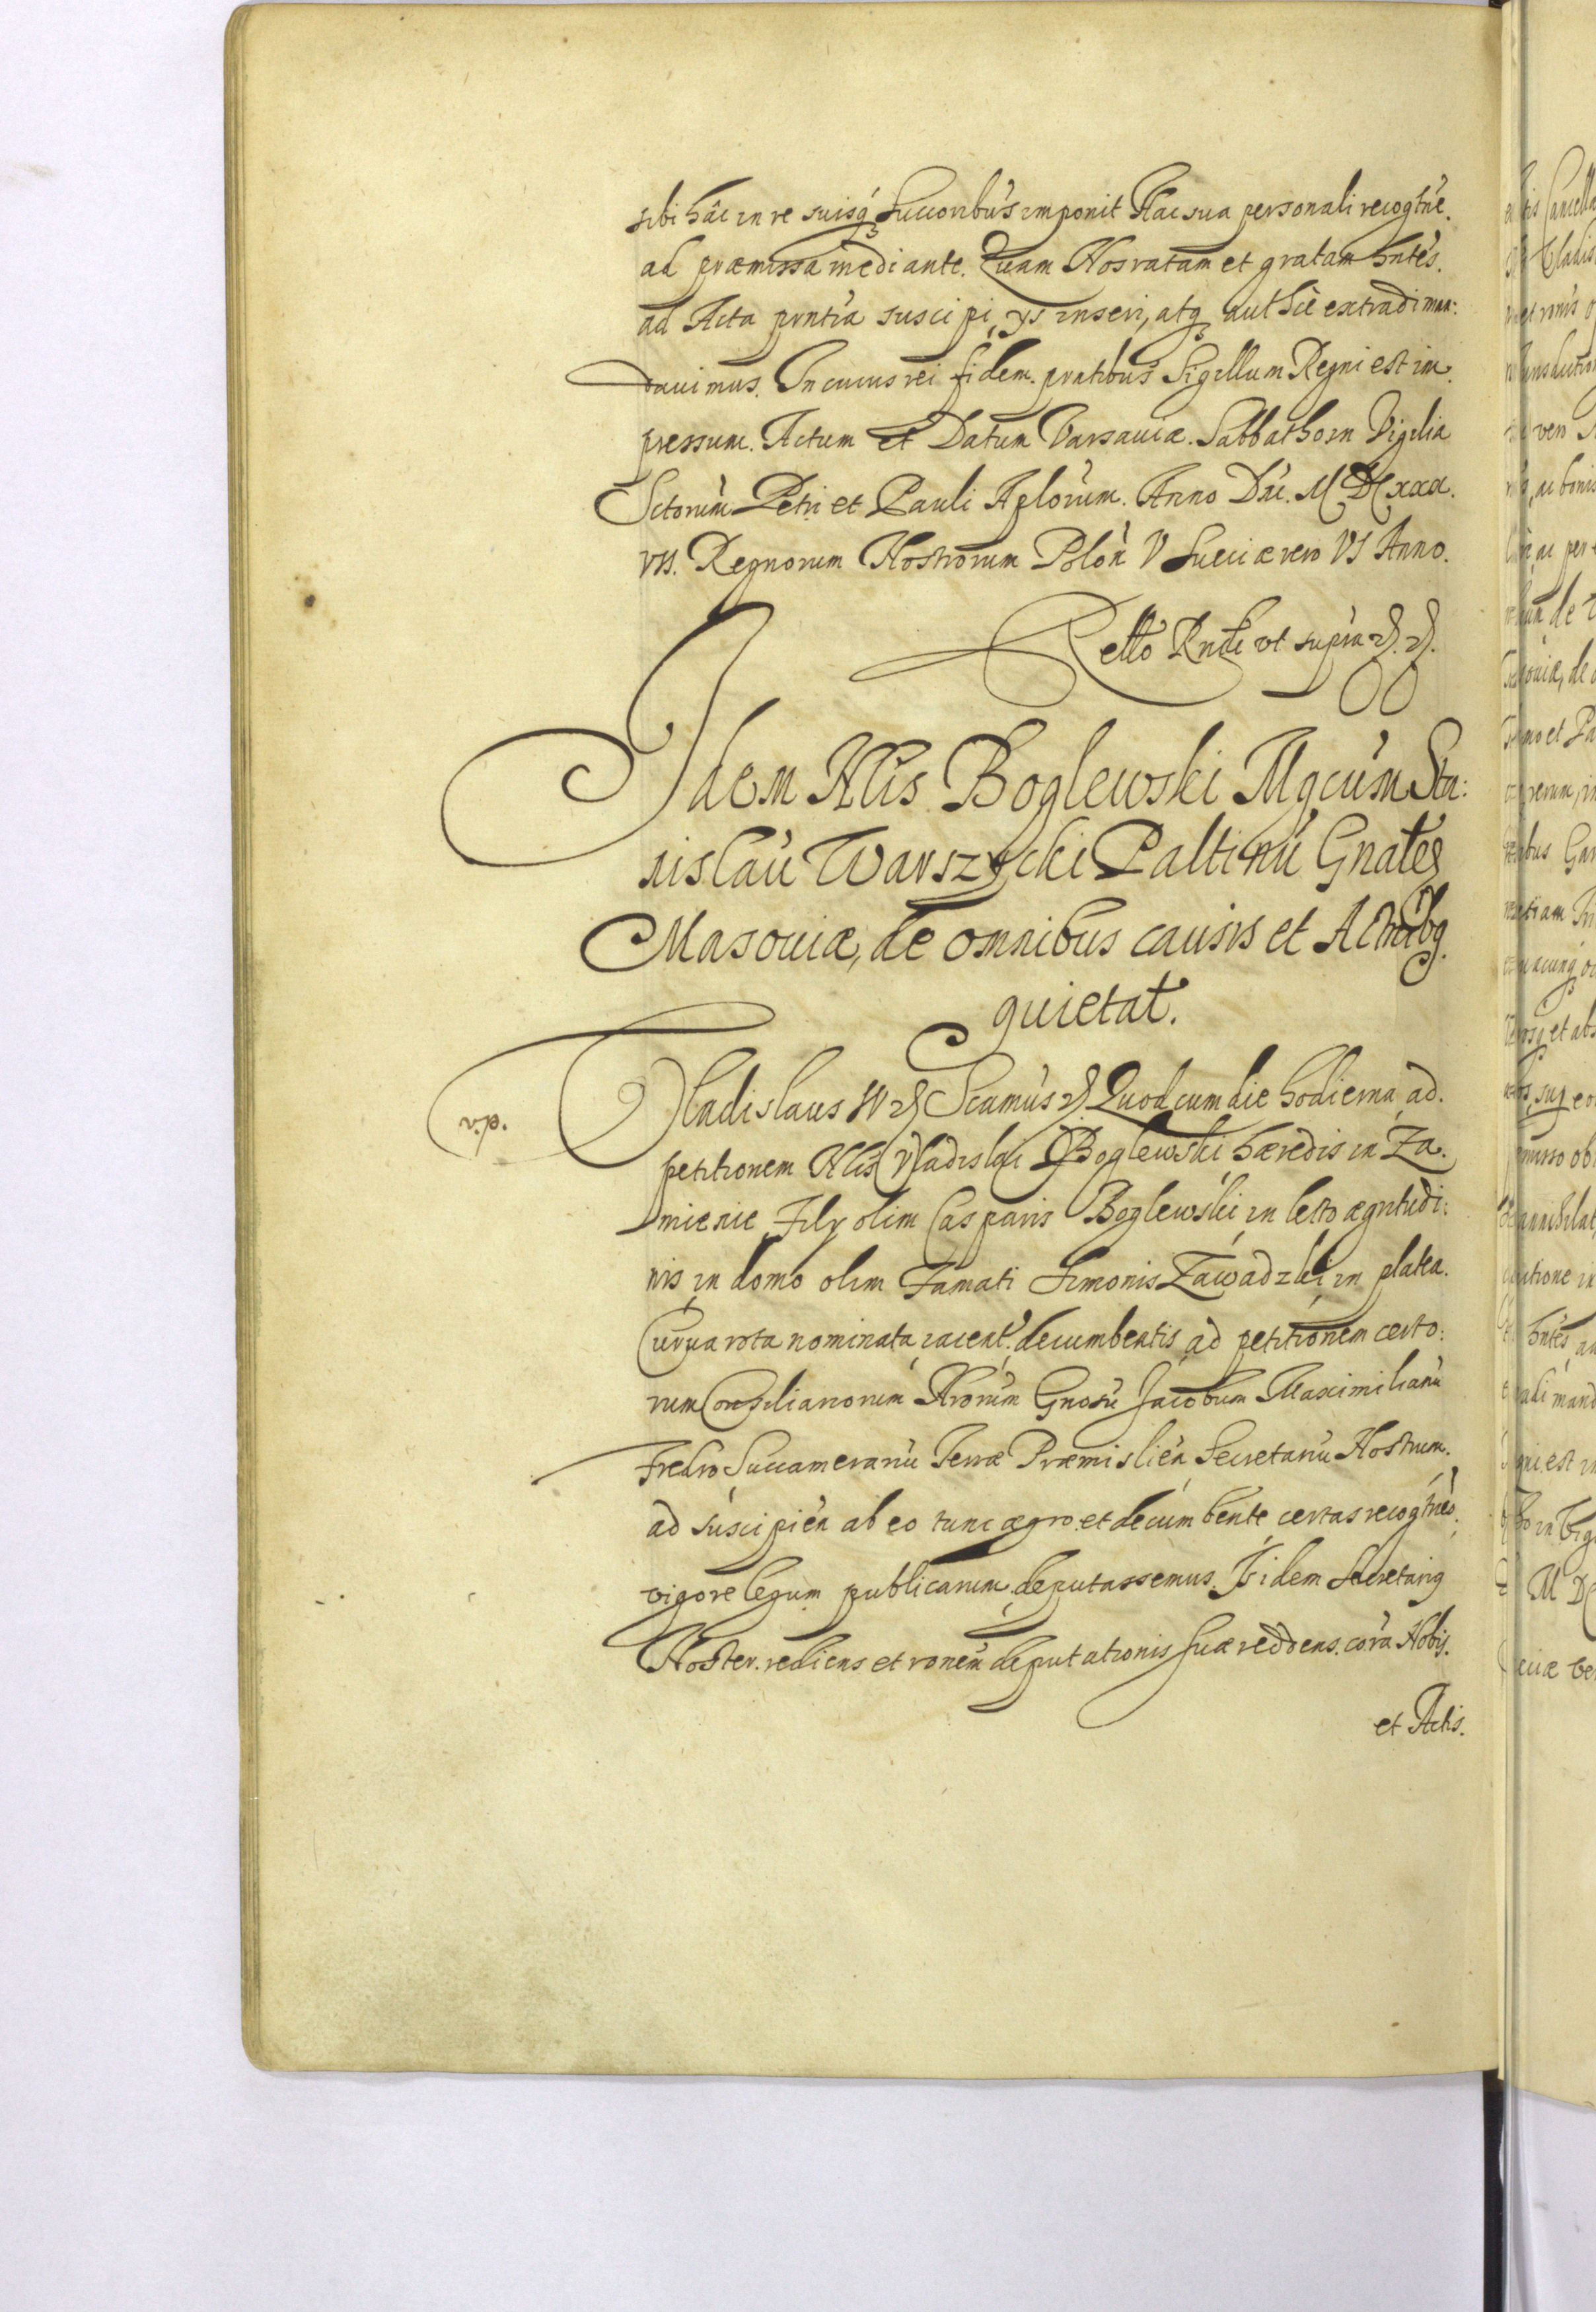 sibi hâc in re suisq́ Succoribus imponit Hac sua personali recogtne.
ad præmissa mediante. Quam Nos ratam et gratam hntes.
ad Acta pñntia suscipi, ys inseri, atq authce extradi man:
davimus. In cuius rei fidem. pñntibus Sigillum Regni est im
pressum. Actum et Datum Varsaviæ. Sabbatho in Vigilia
Sctorum Petri et Pauli Aplorum. Anno Dni. M DC xxx.
VII. Regnorum Nostrorum Polon V Sueciæ vero VI Anno.
Retto Rndi vt supra
Idem Nlis Boglewski Mgcum Sta:
nislau Warszycki Paltinu Gnalēs
Masoviæ, de omnibus causis et Actnibq.
quietat.
Vladislaus IV Scamus Quod cum die hodierna ad.
petitionem Nlis Vladislai Boglewski hæredis in Za.
mienie Fily olim Casparis Boglewski in lecto ægritudi:
nis in domo olim Famati Simonis Zawadzki in platea.
Curva rota nominata iacent. decumbentis ad petitionem certo:
rum Consiliariorum Nrorum Gnosu Jacobum Maximilianu
Fredro Succamerariu Terræ Præmislien Secretariu Nostrum.
ad suscipien ab eo tunc ægro et decumbente certas recogtnes.
vigore legum publicarum deputassemus. Is idem Secretariq
Noster rediens et ronem deputationis suæ reddens. cora Nobis.
et Actis.